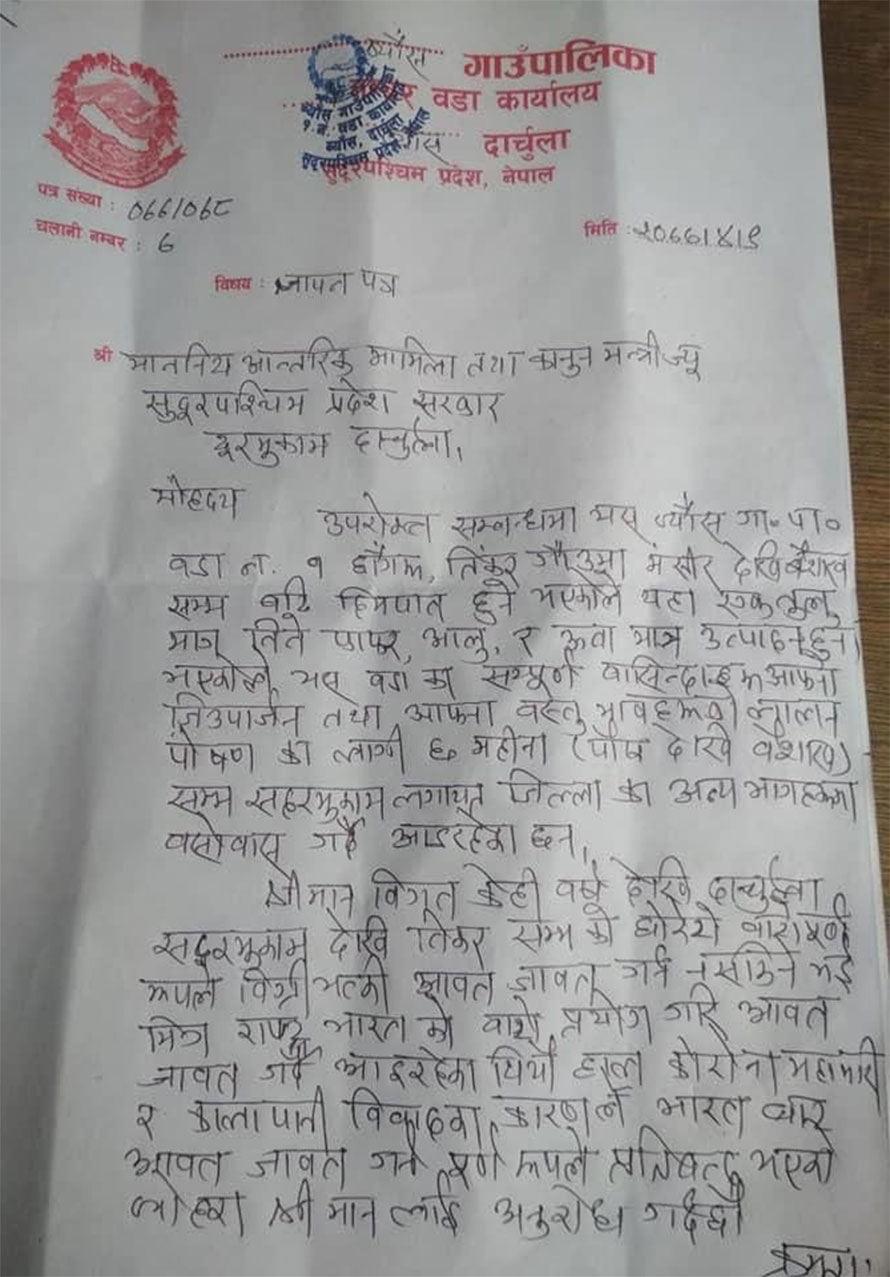 ब्याँस गाउँपालिका
वडा कार्यालय
दार्चुला
सुदूरपश्चिम प्रदेश, नेपाल
पत्र संख्या : ०७७/०७८
चलानी नम्बर : ६
मिति : २०७७।४।९
विषय : ज्ञापन पत्र
श्री माननिय आन्तरिक मामिला तथा कानुन मन्त्रीज्यू
सुदूरपश्चिम प्रदेश सरकार
दार्चुला,
मोहदय
उपरोक्त सम्बन्धमा यस ब्याँस गा॰ पा॰
वडा न. १ छाँगरू, तिंकर गाँउमा मंसीर देखि बैशाख
सम्म बढि हिमपात हुने भएकोले यहा
मात्र फापर, आलु, र ऊवा मात्र उत्पादन हुने
भएकोले, यस वडा का सम्पूर्ण आफ्ना
जिउपार्जन तथा आफ्ना वस्तु भाव लालन
पोषण का लागी ६ महीना (पौष देखि बैशाख)
सम्म लगायत जिल्ला का अन्य भागहरूमा
वसोवास गर्दै आइरहेका छन्,
श्रीमान विगत केही वर्ष देखि दार्चुला
देखि तिंकर सम्म को घोरेटो वाटो पूर्ण
रूपले विग्री भत्की आवत जावत गर्न नसकिने भई
मित्र राष्ट्र भारत को वाटो प्रयोग गरि आवत
जावत गर्दै आइरहेका थियौ हाल कोरोना महामारी
र कालापानी विवादका कारणले भारत वाट
आवत जावत गर्न पूर्ण रूपले प्रतिबन्ध भएको
व्यहोरा श्री मान लाई अनुरोध गर्दछौ
क्रमश: